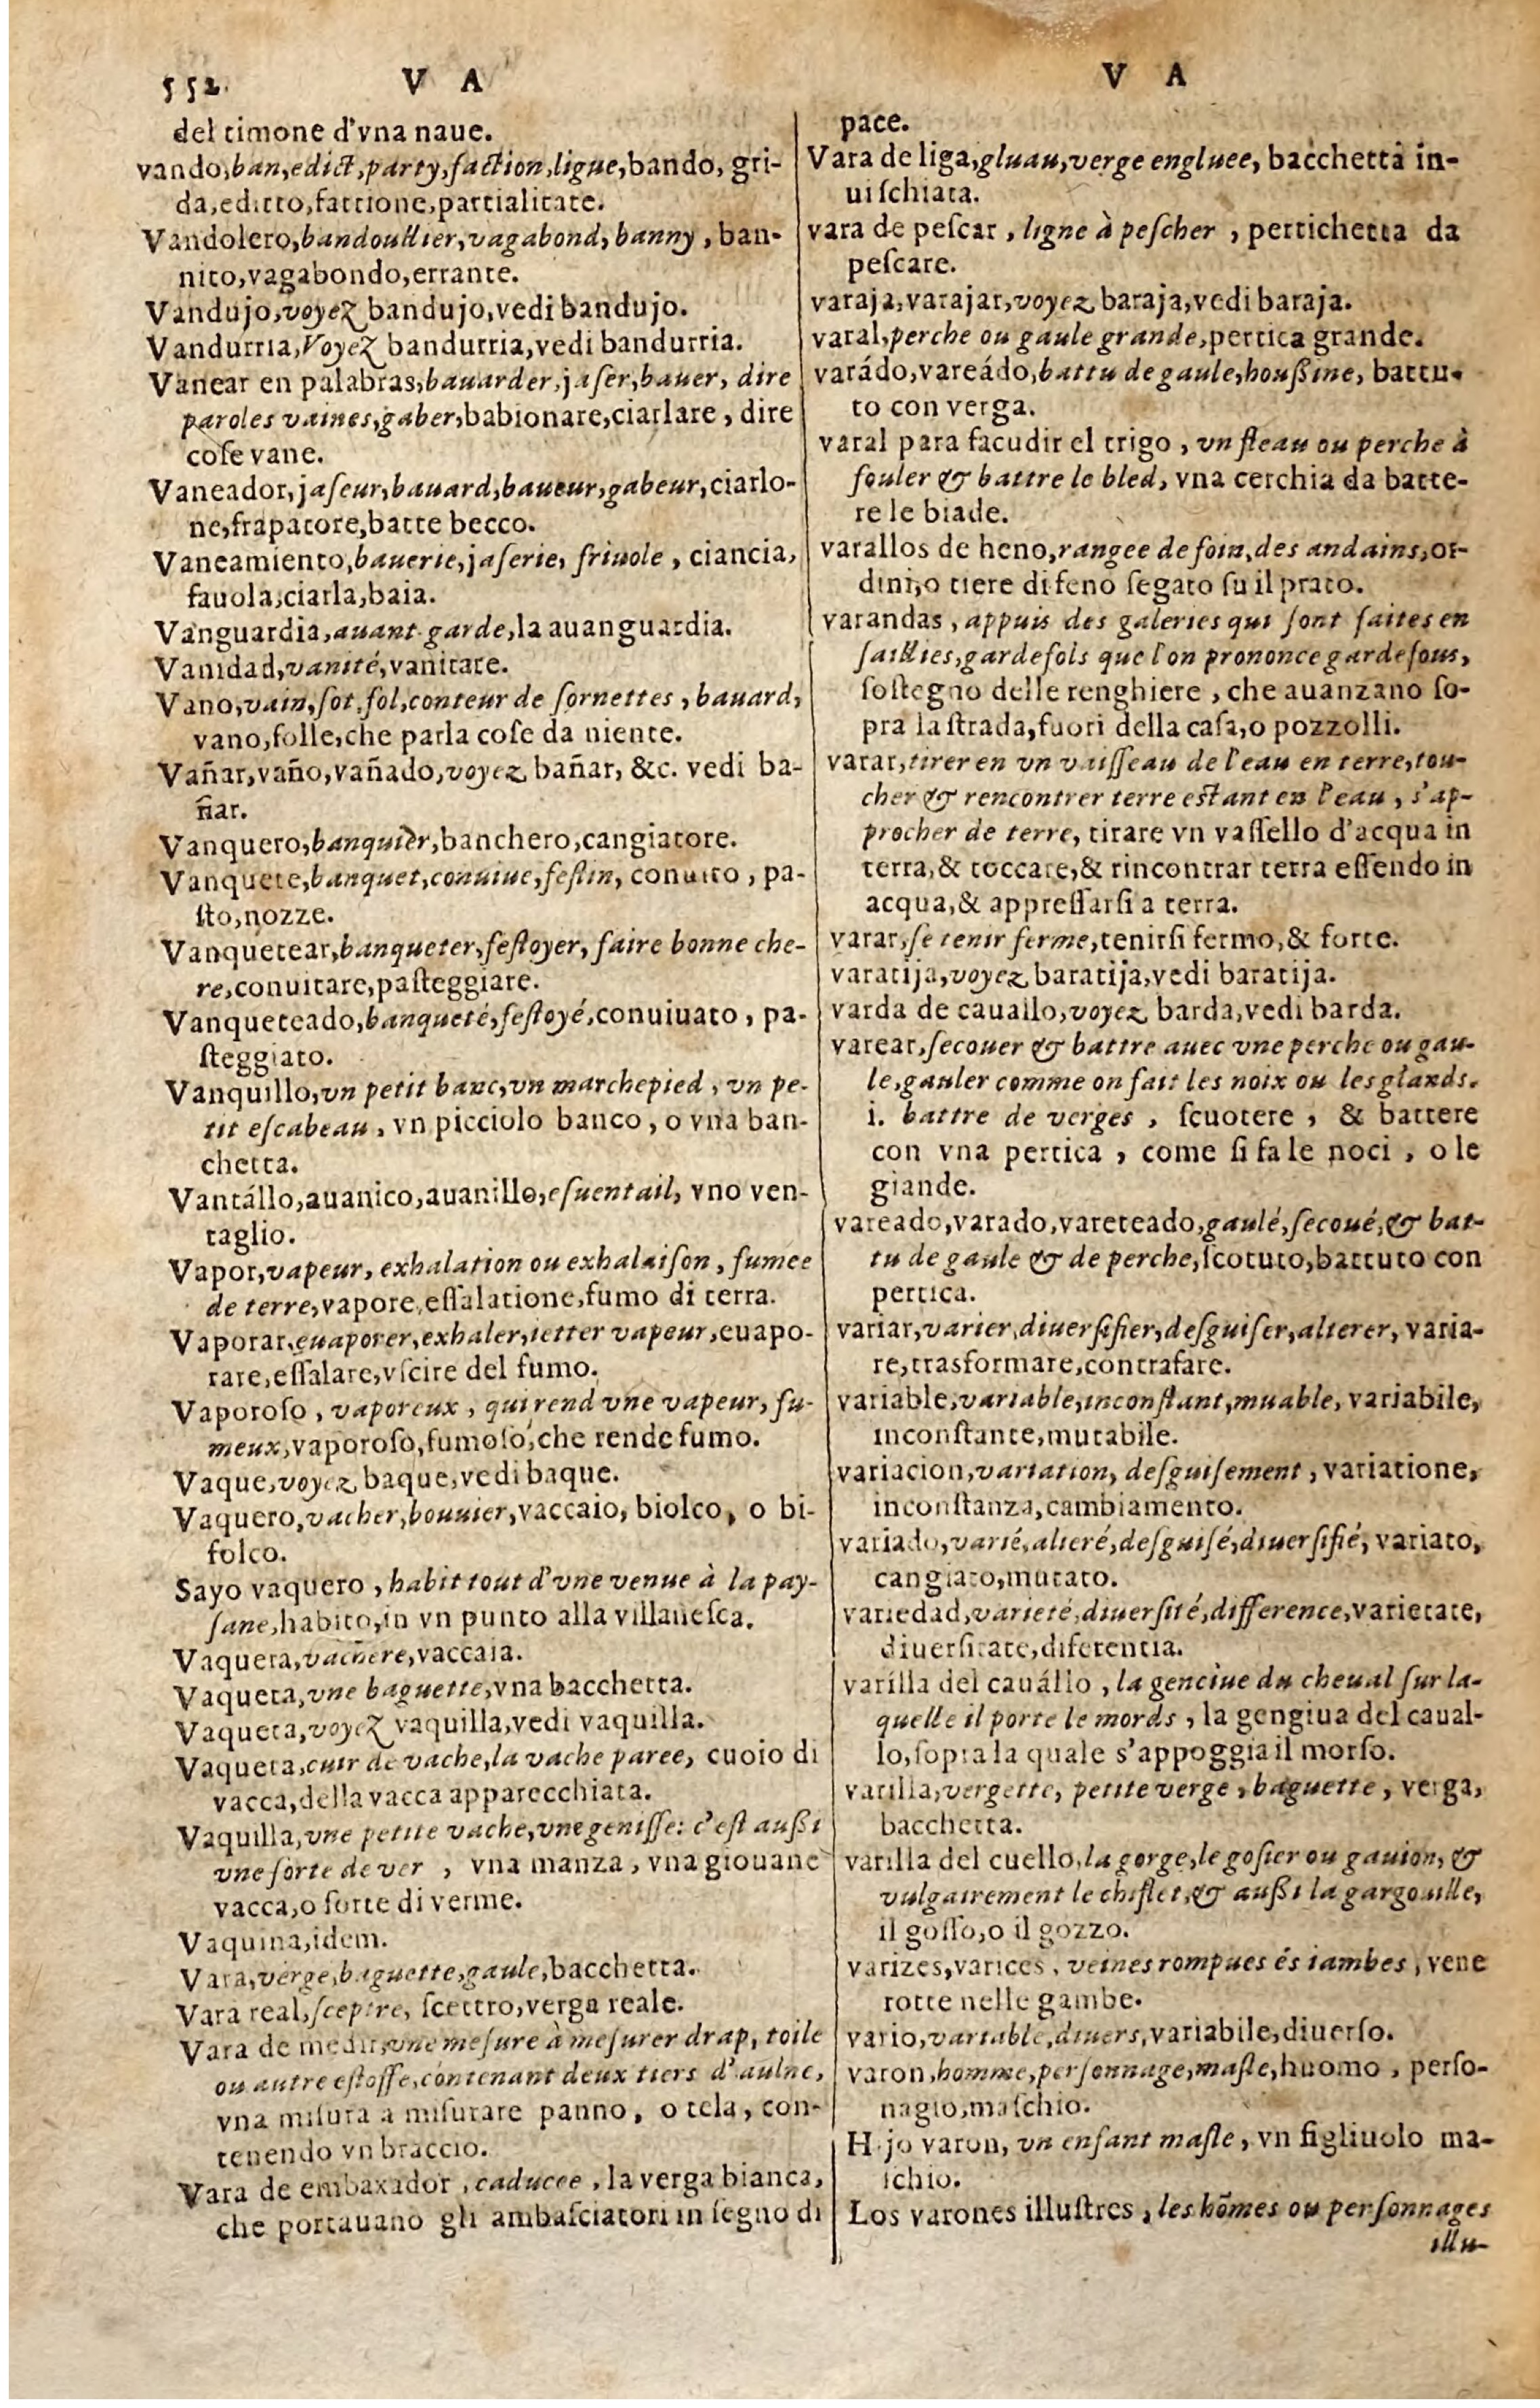 552. V A
del timone d'vna naue.
vando, ban, edict, party, faction, ligue, bando, gri-
da, editto, fattione, partialitate.
Vandolero, bandoullier, vagabond, banny, ban-
nito, vagabondo, errante.
Vandujo, voyez bandujo, vedi bandujo.
Vandurria, Voyez bandurria, vedi bandurria.
Vanear en palabras, bauarder, jaſer, bauer, dire
paroles vaines, gaber, babionare, ciarlare, dire
coſe vane.
Vaneador, jaſeur, bauard, baueur, gabeur, ciarlo-
ne, frapatore, batte becco.
Vaneamiento, bauerie, jaſerie, friuole, ciancia,
fauola, ciarla, baia.
Vanguardia, auant garde, la auanguardia.
Vanidad, vanité, vanitate.
Vano, vain, ſot, fol, conteur de ſornettes, bauard,
vano, folle, che parla coſe da niente.
Vañar, vaño, vañado, voyez bañar, &c. vedi ba-
ñar.
Vanquero, banquier, banchero, cangiatore.
Vanquete, banquet, conuiue, feſtin, conuito, pa-
ſto, nozze.
Vanquetear, banqueter, feſtoyer, faire bonne che-
re, conuitare, paſteggiare.
Vanqueteado, banqueté, feſtoyé, conuiuato, pa-
ſteggiato.
Vanquillo, vn petit banc, vn marchepied, vn pe-
tit eſcabeau, vn picciolo banco, o vna ban-
chetta.
Vantállo, auanico, auanillo, eſuentail, vno ven-
taglio.
Vapor, vapeur, exhalation ou exhalaiſon, fumee
de terre, vapore, eſſalatione, fumo di terra.
Vaporar, euaporer, exhaler, ietter vapeur, euapo-
rare, eſſalare, vſcire del fumo.
Vaporoſo, vaporeux, qui rend vne vapeur, fu-
meux, vaporoſo, fumoſo, che rende fumo.
Vaque, voyez baque, vedi baque.
Vaquero, vacher, bouuier, vaccaio, biolco, o bi-
folco.
Sayo vaquero, habit tout d'vne venue à la pay-
ſane, habito, in vn punto alla villaneſca.
Vaquera, vachere, vaccaia.
Vaqueta, vne baguette, vna bacchetta.
Vaqueta, voyez vaquilla, vedi vaquilla.
Vaqueta, cuir de vache, la vache paree, cuoio di
vacca, della vacca apparecchiata.
Vaquilla, vne petite vache, vne geniſſe: c'eſt außi
vne ſorte de ver, vna manza, vna giouane
vacca, o ſorte di verme.
Vaquina, idem.
Vara, verge, baguette, gaule, bacchetta.
Vara real, ſceptre, ſcettro, verga reale.
Vara de medir, vne meſure à meſurer drap, toile
ou autre eſtoffe, contenant deux tiers d'aulne,
vna miſura a miſurare panno, o tela, con-
tenendo vn braccio.
Vara de embaxador, caducee, la verga bianca,
che portauano gli ambaſciatori in ſegno di
V A
pace.
Vara de liga, gluau, verge engluee, bacchetta in-
uiſchiata.
vara de peſcar, ligne à peſcher, pertichetta da
peſcare.
varaja, varajar, voyez baraja, vedi baraja.
varal, perche ou gaule grande, pertica grande.
varádo, vareádo, battu de gaule, houßine, battu-
to con verga.
varal para facudir el trigo, vn fleau ou perche à
fouler & battre le bled, vna cerchia da batte-
re le biade.
varallos de heno, rangee de foin, des andains, or-
dini, o tiere di feno ſegato ſu il prato.
varandas, appuis des galeries qui ſont faites en
ſaillies, gardefols que l'on prononce gardefous,
ſoſtegno delle renghiere, che auanzano ſo-
pra la ſtrada, fuori della caſa, o pozzolli.
varar, tirer en vn vaiſſeau de l'eau en terre, tou-
cher & rencontrer terre estant en l'eau, s'ap-
procher de terre, tirare vn vaſſello d'acqua in
terra, & toccare, & rincontrar terra eſſendo in
acqua, & appreſſarſi a terra.
varar, ſe tenir ferme, tenirſi fermo, & forte.
varatija, voyez baratija, vedi baratija.
varda de cauallo, voyez barda, vedi barda.
varear, ſecouer & battre auec vne perche ou gau-
le, gauler comme on fait les noix ou les glands.
i. battre de verges, ſcuotere, & battere
con vna pertica, come ſi fa le noci, o le
giande.
vareado, varado, vareteado, gaulé, ſecoué, & bat-
tu de gaule & de perche, ſcotuto, battuto con
pertica.
variar, varier, diuerſifier, deſguiſer, alterer, varia-
re, trasformare, contrafare.
variable, variable, inconſtant, muable, variabile,
inconſtante, mutabile.
variacion, variation, deſguiſement, variatione,
inconſtanza, cambiamento.
variado, varié, alteré, deſguiſé, diuerſifié, variato,
cangiato, mutato.
variedad, varieté, diuerſité, difference, varietate,
diuerſitate, diferentia.
varilla del cauállo, la genciue du cheual ſur la-
quelle il porte le mords, la gengiua del caual-
lo, ſopra la quale s'appoggia il morſo.
varilla, vergette, petite verge, baguette, verga,
bacchetta.
varilla del cuello, la gorge, le goſier ou gauion, &
vulgairement le chiflet, & außi la gargouille,
il goſſo, o il gozzo.
varizes, varices, veines rompues és iambes, vene
rotte nelle gambe.
vario, variable, diuers, variabile, diuerſo.
varon, homme, perſonnage, maſle, huomo, perſo-
nagio, maſchio.
Hijo varon, vn enfant maſle, vn figliuolo ma-
ſchio.
Los varones illuſtres, les hõmes ou perſonnages
illu-